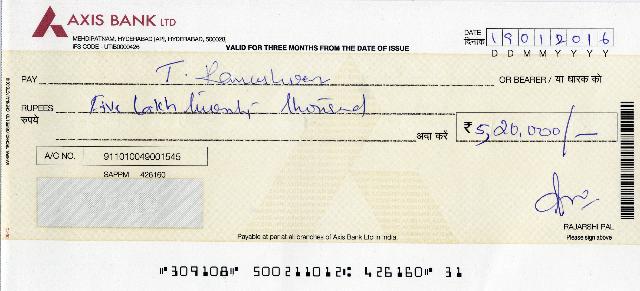 AXIS BANK LTD
MEHDIPATNAM, HYDERABAD [AP], HYDERABAD, 500028,
IFS CODE - UTIB0000426
VALID FOR THREE MONTHS FROM THE DATE OF ISSUE
DATE
दिनांक
1 9 0 1 2 0 1 6
D D M M Y Y Y Y
PAY T. Rameshwar OR BEARER / या धारक को
RUPEES Five Lakh Twenty Thousand
रुपये
अदा करें ₹ 5,20,000/-
A/C NO. 911010049001545
SAPPM 426160
RAJARSHI PAL
Please sign above
Payable at par at all branches of Axis Bank Ltd in India.
⑈309108⑈ 500211012⑆ 426160⑈ 31